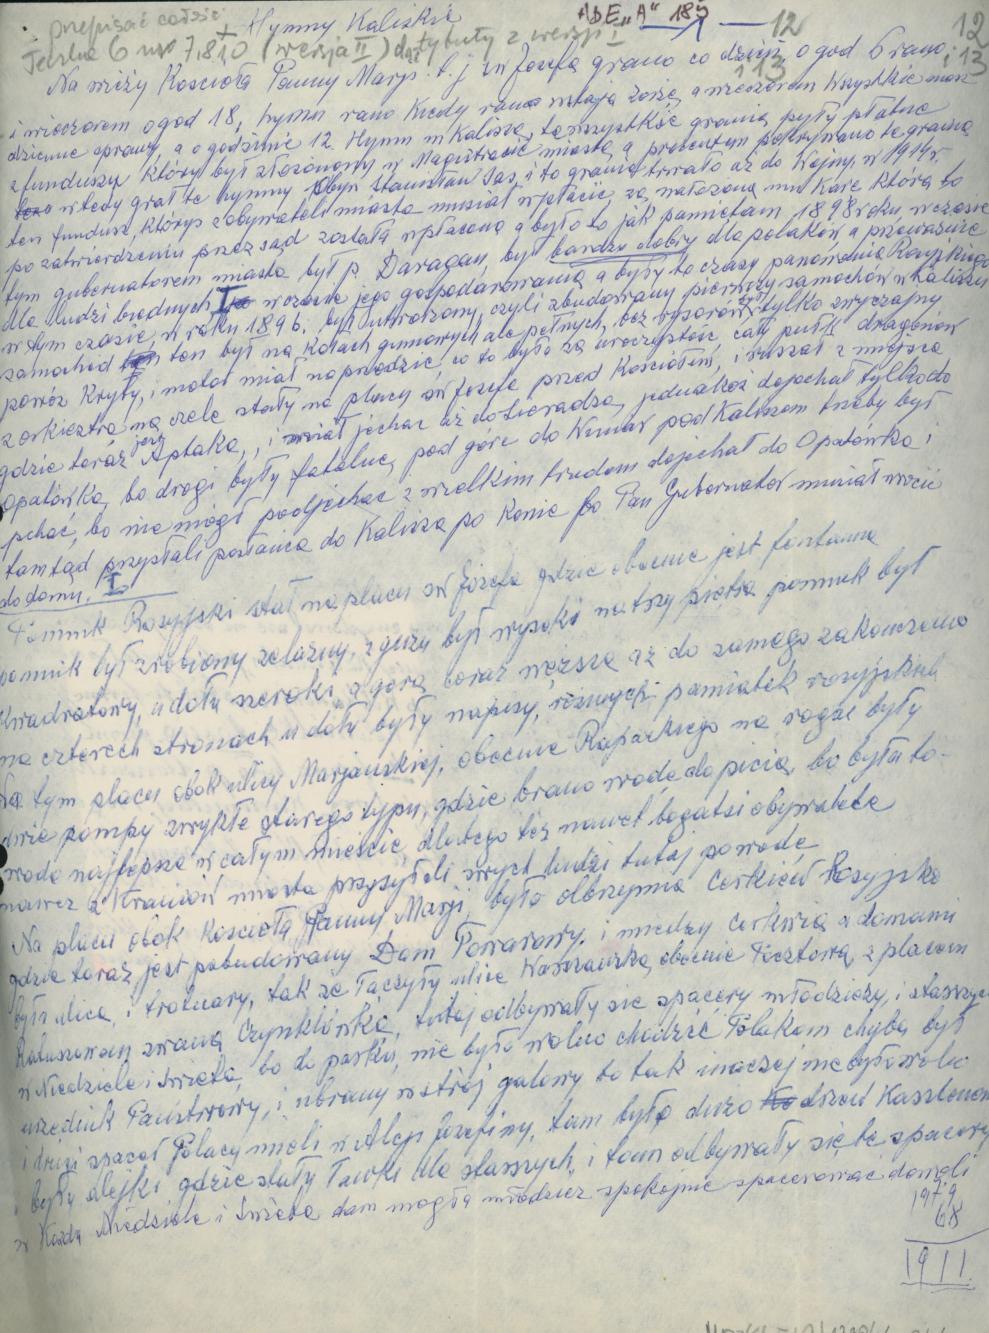 przepisać całość
Hymny Kaliskie
ADE "A" 185
12
12
Teczka 6 nr 7,8,10 (wersja II) tytuły z wersji I
13
13
Na wieży Kościoła Panny Marji t. j św Józefa grano co dzień o god 6 rano,
i wieczorem o god 18, hymn rano Kiedy rane wstają zorze, a wieczorem Wszystkie nasze
dzienne sprawy, a o godzinie 12 Hymn m Kalisza, te wszystkie grania były płatne
z funduszu który był złożony w Magistracie miasta, a procentem pokrywano te grania
wtedy grał te hymny Stanisław Sas, i to granie trwało aż do Wojny, w 1914 r.
ten fundusz któryś z obywateli miasta musiał wpłacić, za nałożoną mu karę która to
po zatwierdzeniu przez sąd została wpłacona a było to jak pamiętam 1898 roku, w czasie
tym gubernatorem miasta był p. Daragan, był bardzo dobry dla polaków a przeważnie
dla ludzi biednych I w czasie jego gospodarowania a były to czasy panowania Rosyjskiego
w tym czasie, w roku 1896. był utworzony, czyli zbudowany pierwszy samochód w Kaliszu
samochód ten był na kołach gumowych ale pełnych, bez resorów, tylko zwyczajny
powóz Kryty, i motor miał na przedzie, co to było za uroczystość, cały pułk dragonów
z orkiestrą na czele stały na placu św Józefa przed Kościołem, i ruszał z miejsca
gdzie teraz jest Apteka, i miał jechać aż do Sieradza, jednakże dojechał tylko do
Opatówka, bo drogi były fatalne, pod górę do Winiar pod Kaliszem trzeba był
pchać, bo nie mógł podjechać z wielkim trudem dojechał do Opatówka i
tamtąd przysłali posłańca do Kalisza po konie bo Pan Gubernator musiał wrócić
do domu. I
Pomnik Rosyjski stał na placu św Józefa gdzie obecnie jest fontanna
pomnik był zrobiony żelazny, z guzu był wysoki na trzy piętra pomnik był
Kwadratowy, u dołu szeroki, a górą coraz węższy aż do samego zakończenia
na czterech stronach u dołu były napisy, różnych pamiątek rosyjskich
Na tym placu obok ulicy Marjańskiej, obecnie Rapackiego na rogu były
dwie pompy zwykłe starego typu, gdzie brano wodę do picia, bo była to-
woda najlepsza w całym mieście, dlatego też nawet bogatsi obywatele
nawet z Krańców miasta przysyłali swych ludzi tutaj po wodę
Na placu obok Kościoła Panny Marji, była olbrzymia Cerkiew Rosyjska
gdzie teraz jest pobudowany Dom Towarowy, i między Cerkwią a domami
była ulica, i trotuary, tak że łączyły ulicę Warszawską, obecnie Pocztową, z placem
Ratuszowym zwaną Cynklówką, tutaj odbywały się spacery młodzieży, i starszych
w Niedziele i święta, bo do parku, nie było wolno chodzić Polakom chyba był
urzędnik Państwowy, i ubrany w strój galowy bo tak inaczej nie było wolno
i drugi spacer Polacy mieli w Aleji Józefiny, tam było dużo drzew Kasztanów
i były alejki gdzie stały ławki dla starszych, i tam odbywały się te spacery
w Każdą Niedzielę i święta tam mogła młodzież spokojnie spacerować dowoli
1979
68
1911